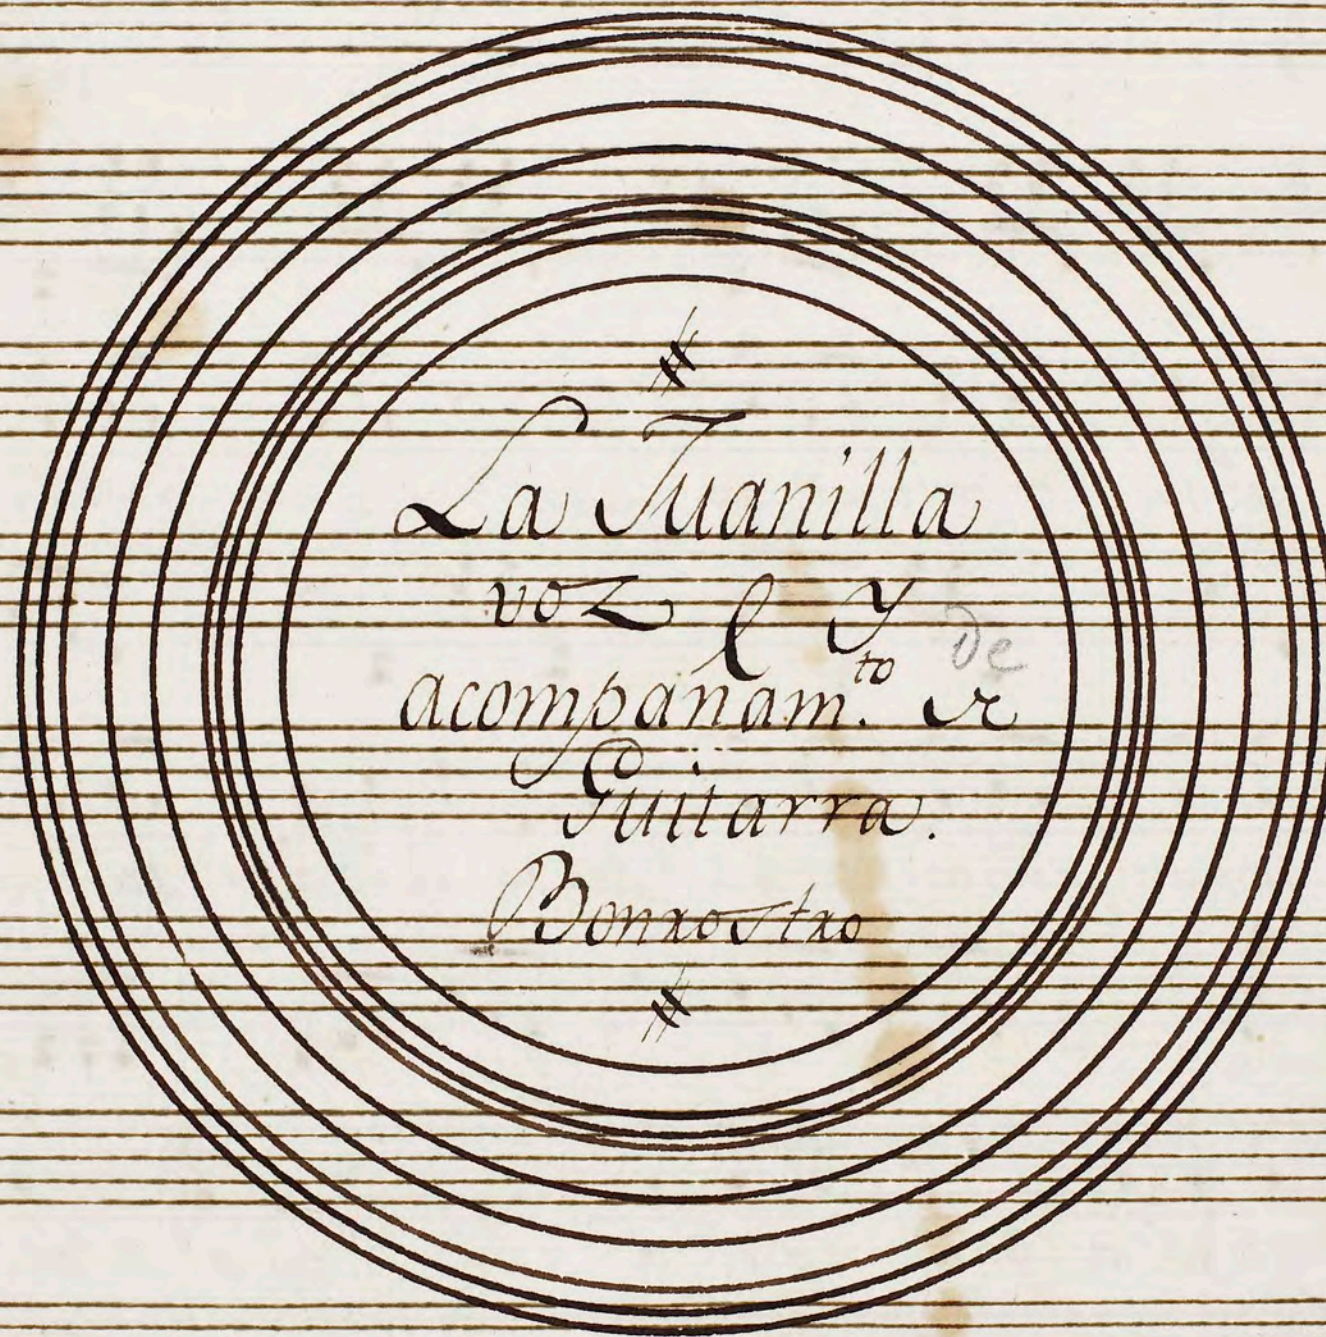 La Juanilla
voz y
acompañam.to de
De
Guitarra.
Bonrostro